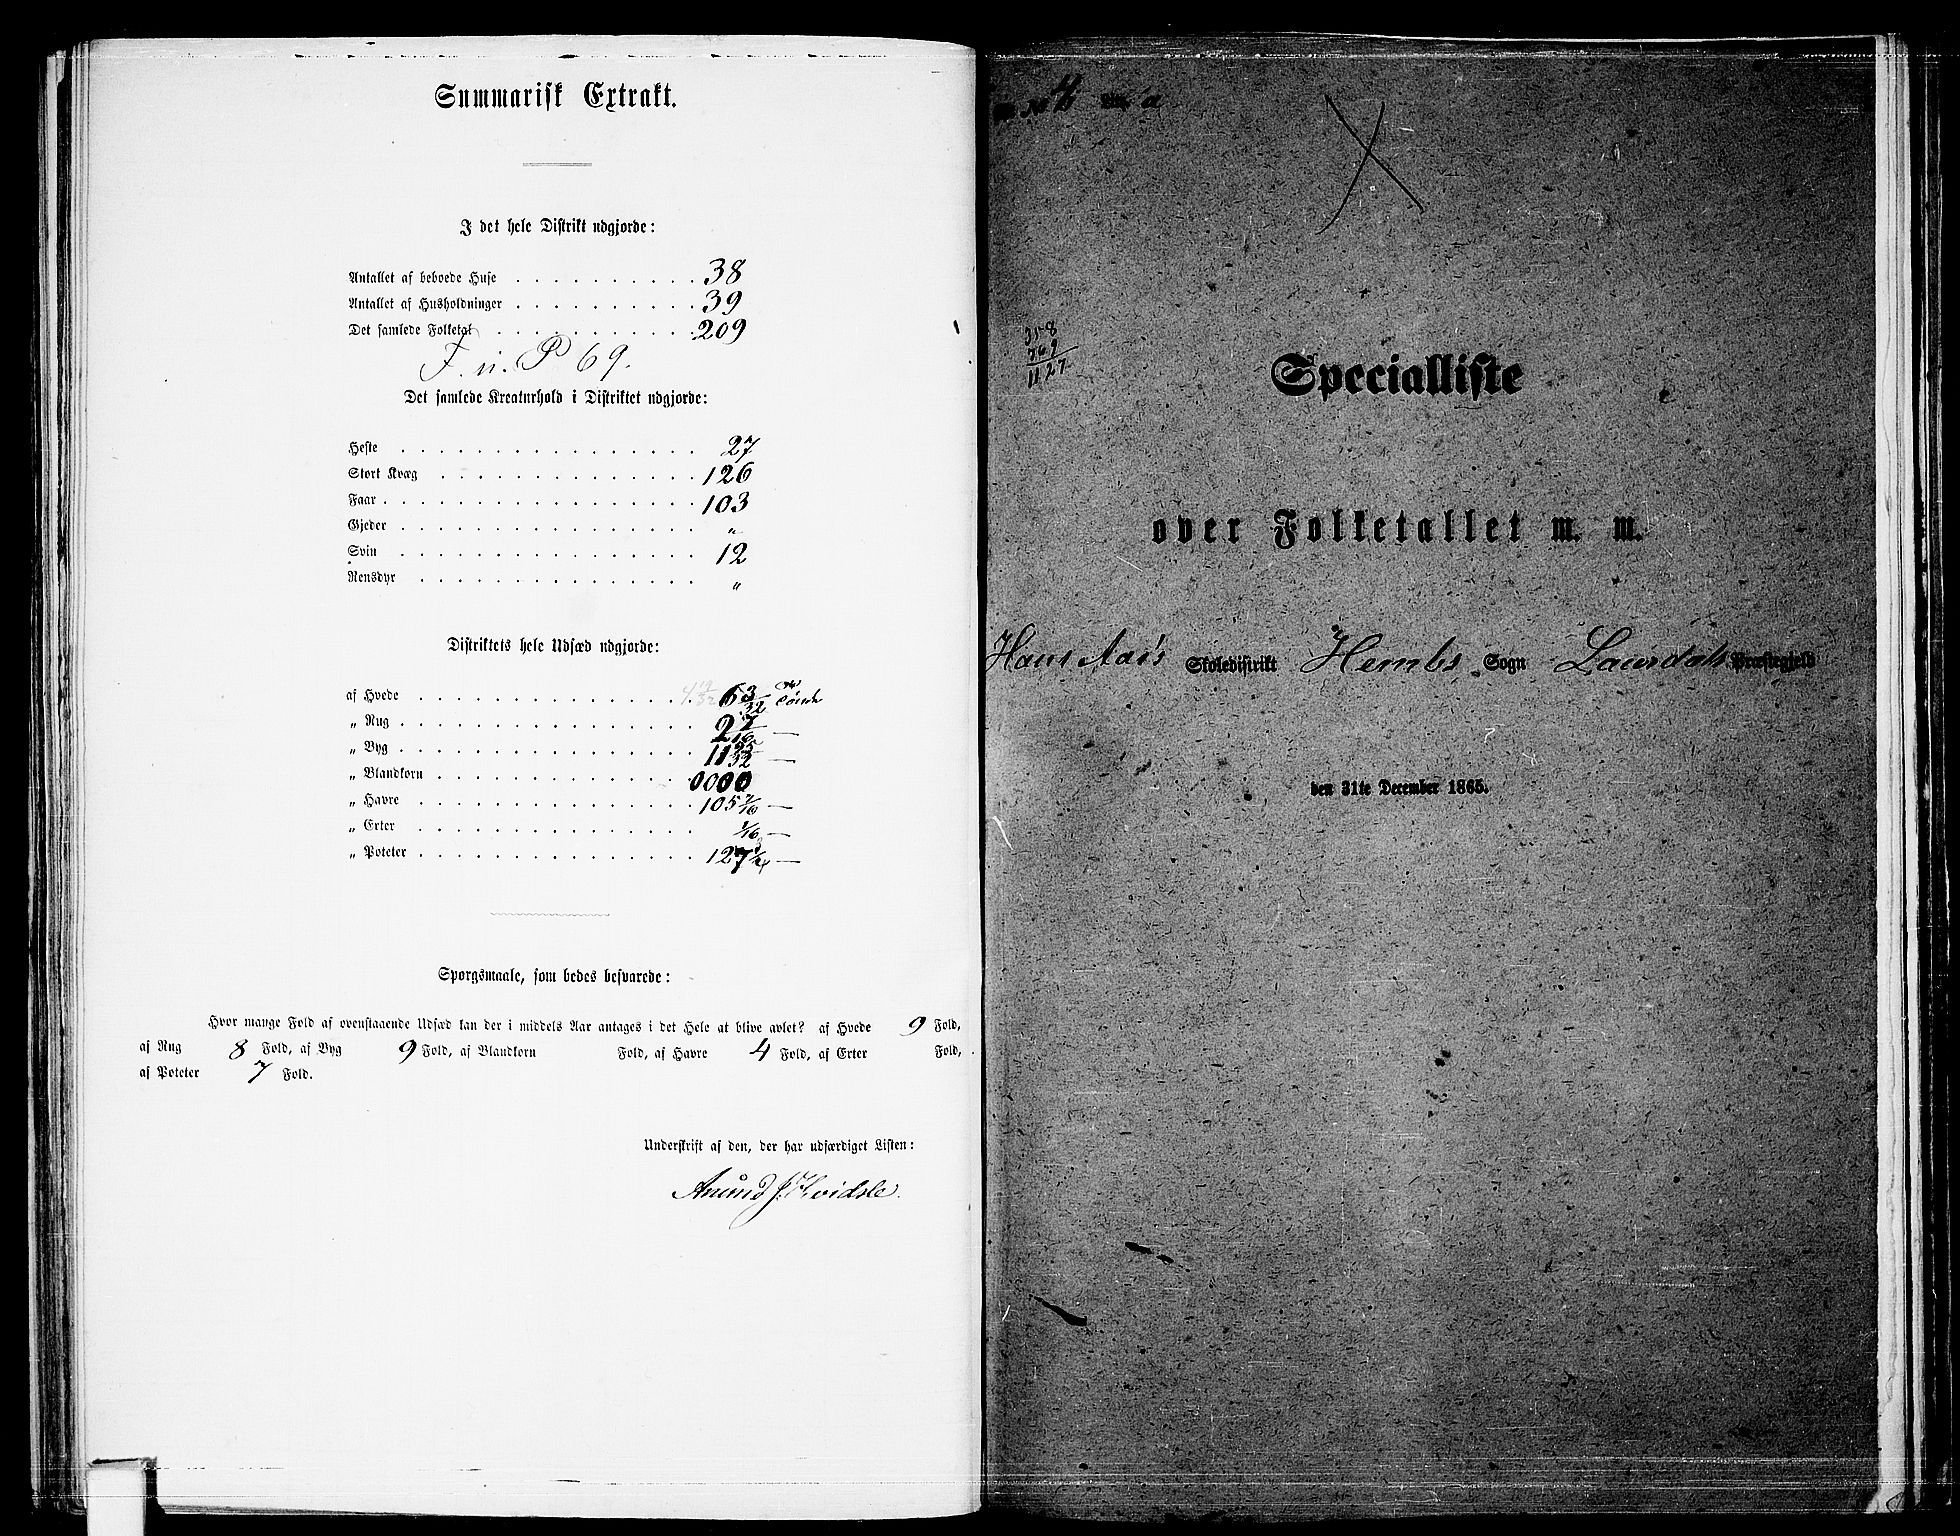 Summarisk Extrakt.
I det hele Distrikt udgjorde:
Antallet af beboede Huse . . . . . . . . . . 38
Antallet af Husholdninger . . . . . . . . . . 39
Det samlede Folketal . . . . . . . . . . . 209
F. n. P 69.
Det samlede Kreaturhold i Distriktet udgjorde:
Heste . . . . . . . . . . . . . . . . 27
Stort Kvæg . . . . . . . . . . . . . . 126
Faar . . . . . . . . . . . . . . . . . 103
Gjeder . . . . . . . . . . . . . . . . „
Svin . . . . . . . . . . . . . . . . 12
Rensdyr . . . . . . . . . . . . . . . „
Distriktets hele Udsæd udgjorde:
af Hvede . . . . . . . . . . . . . . . 6 3/32 Tønde
„ Rug . . . . . . . . . . . . . . . . 2 7/16 —
„ Byg . . . . . . . . . . . . . . . . 11 25/32 —
„ Blandkorn . . . . . . . . . . . . . . 0000
„ Havre . . . . . . . . . . . . . . . 105 7/16 —
„ Erter . . . . . . . . . . . . . . . 1/16 —
„ Poteter . . . . . . . . . . . . . . . 127 —
Sporgsmaale, som bedes besvarede:
Hvor mange Fold af ovenstaaende Udsæd kan der i middels Aar antages i det Hele at blive avlet? af Hvede 9 Fold,
af Rug 8 Fold, af Byg 9 Fold, af Blandkorn Fold, af Havre 4 Fold, af Erter Fold,
af Poteter 7 Fold.
Underskrift af den, der har udfærdiget Listen:
Anund J. Kvidsle.
4 a
358
769
1127
Specialliste
over Folketallet m. m.
Skoledistrikt Hembs Sogn Laurdals Præstegjeld
den 31te December 1865.